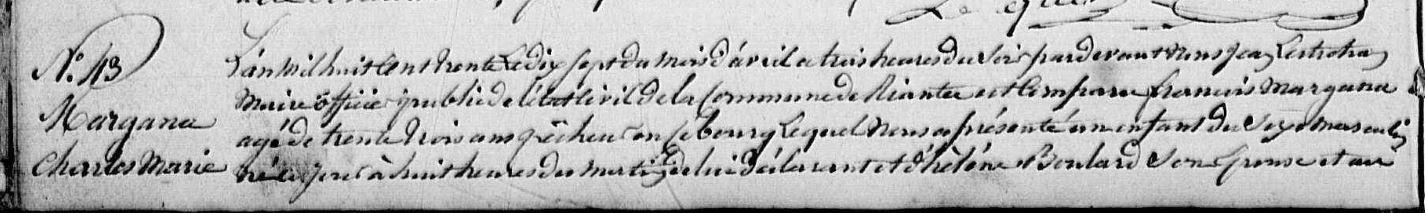 N.° 43
Margana
Charles Marie
L'an mil huit Cent trente Le dix sept du mois d'avril a trois heures du soir pardevant Nous Jean
Maire officier public de l'état Civil de la Commune de Riantec est Comparu francois Margana
agé de trente trois ans pêcheur en ce bourg Lequel Nous a présenté un enfant du Sexe masculin
né ce jour à huit heures du matin de lui déclarant et d'hélène Boulard Son Epouse et au